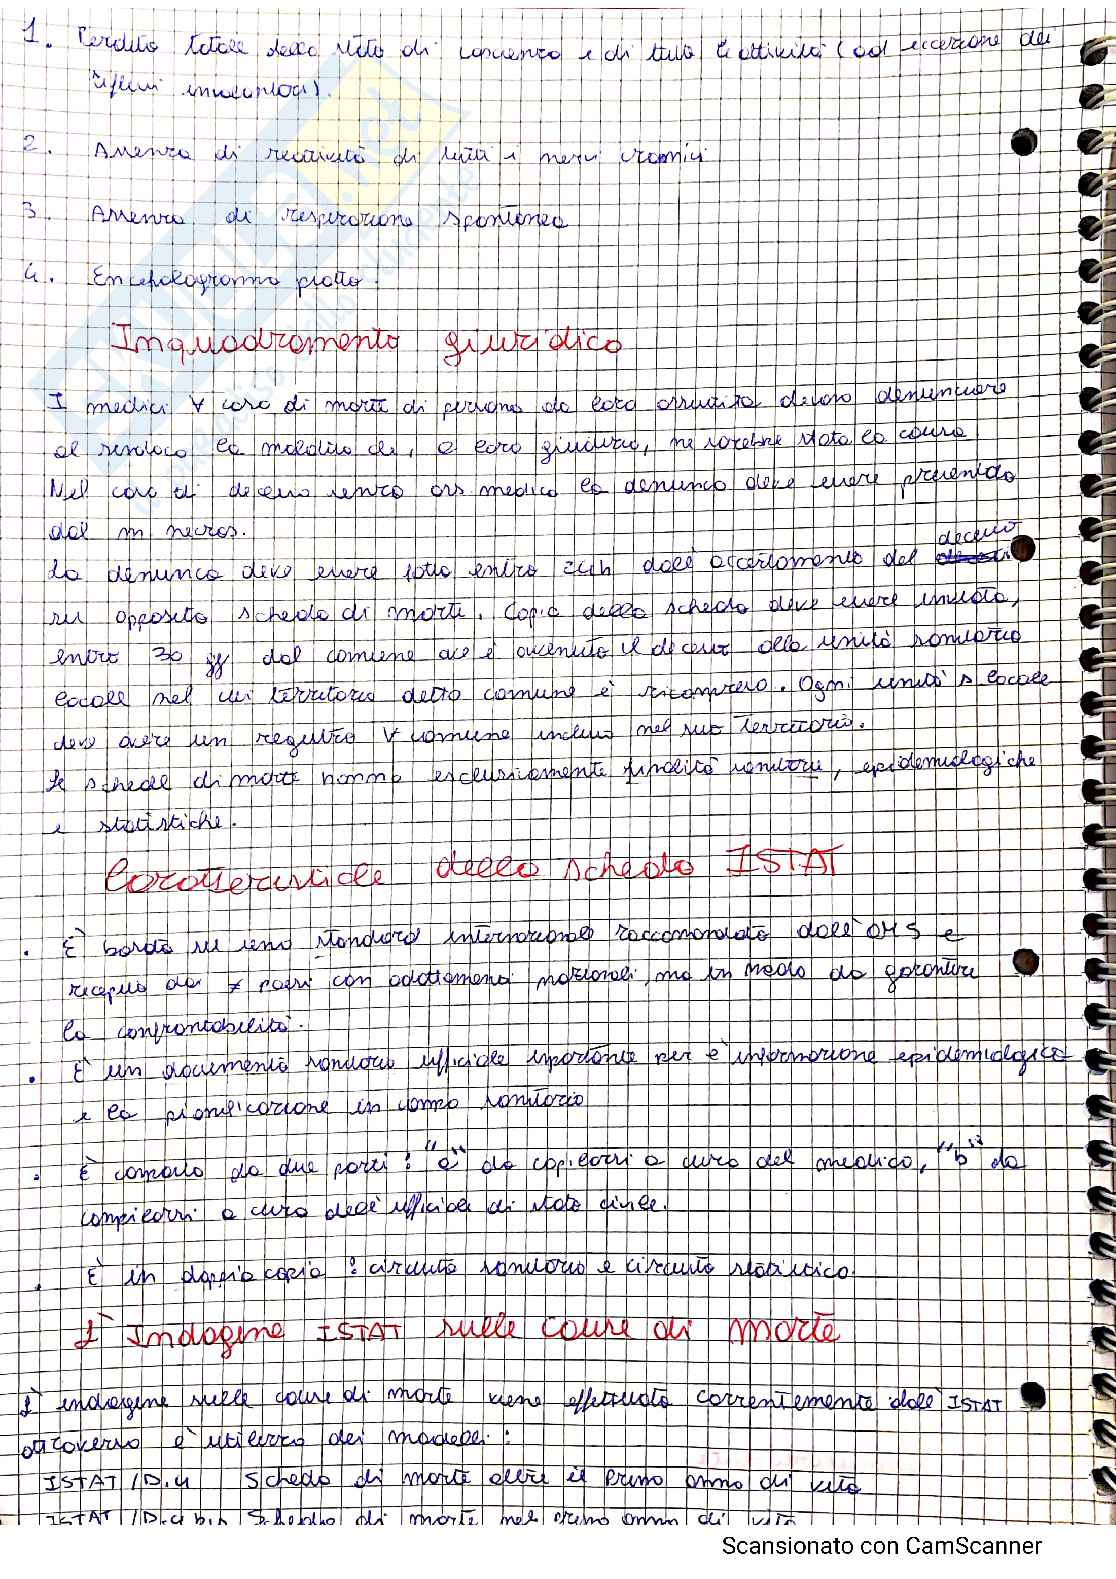 1. Perdita totale della vita di coscienza e di tutte le attività (ad eccezione dei
riflessi
2. Assenza di reattività di tutti i nervi cranici
3. Assenza di respirazione spontanea
4. Encefalogramma piatto.
Inquadramento giuridico
I medici ∀ caso di morte di persona da loro assistita devono denunciare
al sindaco la malattia che, a loro giudizio, ne sarebbe stata la causa
Nel caso di decesso senza ass medica la denuncia deve essere
dal m necros.
La denuncia deve essere fatta entro 24h dall'accertamento del decesso
su apposita scheda di morte. Copia della scheda deve essere inviata,
entro 30 gg dal comune ove è avvenuto il decesso alla unità sanitaria
locale nel cui territorio detto comune è ricompreso. Ogni unità s locale
deve avere un registro ∀ comune incluso nel suo territorio.
Le schede di morte hanno esclusivamente finalità sanitarie, epidemiologiche
e statistiche.
Caratteristiche della scheda ISTAT
• È basata su uno standard internazionale raccomandato dall'OMS e
recepito da ≠ paesi con adattamenti nazionali, ma in modo da garantire
la confrontabilità.
• È un documento sanitario ufficiale importante per l'informazione epidemiologica
e la pianificazione in campo sanitario
• È composto da due parti: "a" da compilarsi a cura del medico, "b" da
compilarsi a cura dell'ufficiale di stato civile.
• È in doppia copia: circuito sanitario e circuito statistico.
L'Indagine ISTAT sulle cause di morte
L'indagine sulle cause di morte viene effettuata correntemente dall'ISTAT
attraverso l'utilizzo dei modelli:
ISTAT/D.4 Scheda di morte oltre il primo anno di vita
ISTAT/D.4 b Scheda di morte nel primo anno di vita
Scansionato con CamScanner